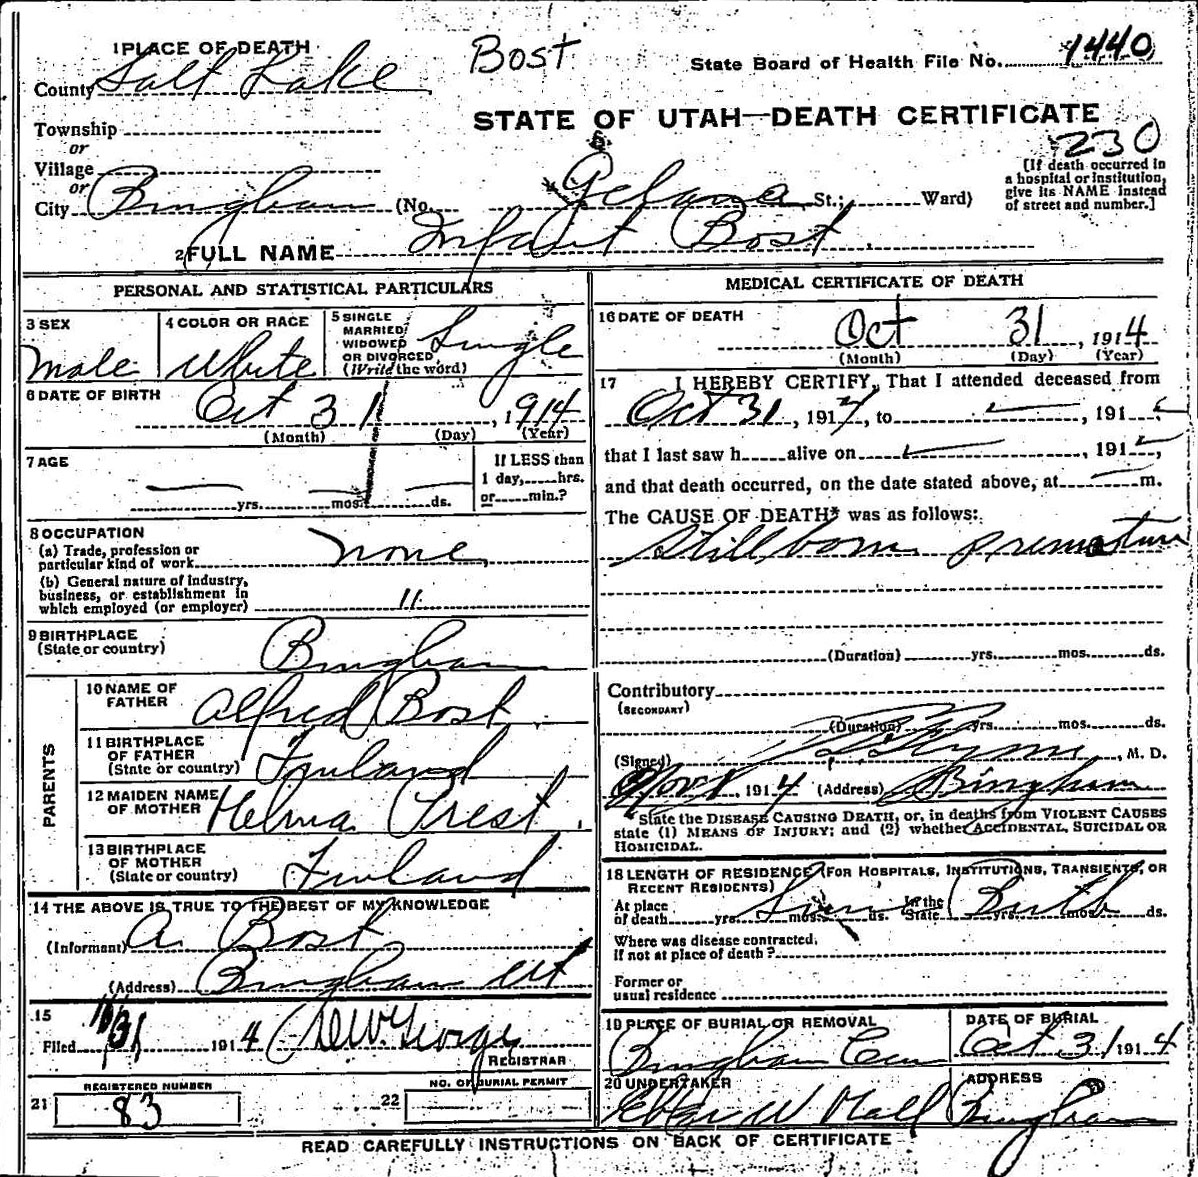 1 PLACE OF DEATH
Bost
State Board of Health File No. 1440
County Salt Lake
STATE OF UTAH—DEATH CERTIFICATE
Township
or
230
Village
or
[If death occurred in a hospital or institution, give its NAME instead of street and number.]
City Bingham (No. St.; Ward)
2 FULL NAME Infant Bost
PERSONAL AND STATISTICAL PARTICULARS
3 SEX
Male
4 COLOR OR RACE
White
5 SINGLE MARRIED WIDOWED OR DIVORCED (Write the word)
Single
6 DATE OF BIRTH
Oct 31, 1914
(Month) (Day) (Year)
7 AGE
yrs. mos. ds.
If LESS than 1 day, hrs. or min.?
8 OCCUPATION
(a) Trade, profession or particular kind of work none
(b) General nature of industry, business, or establishment in which employed (or employer) "
9 BIRTHPLACE
(State or country) Bingham
PARENTS
10 NAME OF FATHER Alfred Bost
11 BIRTHPLACE OF FATHER (State or country) Finland
12 MAIDEN NAME OF MOTHER Helma Prest
13 BIRTHPLACE OF MOTHER (State or country) Finland
14 THE ABOVE IS TRUE TO THE BEST OF MY KNOWLEDGE
(Informant) A. Bost
(Address) Bingham Ut
15
Filed 10/31 1914
REGISTRAR
REGISTERED NUMBER
21 83
NO. OF BURIAL PERMIT
22
MEDICAL CERTIFICATE OF DEATH
16 DATE OF DEATH
Oct 31, 1914
(Month) (Day) (Year)
17 I HEREBY CERTIFY, That I attended deceased from
Oct 31, 1914, to , 191
that I last saw h alive on , 191 ,
and that death occurred, on the date stated above, at m.
The CAUSE OF DEATH* was as follows:
Stillborn premature
(Duration) yrs. mos. ds.
Contributory
(SECONDARY)
(Duration) yrs. mos. ds.
(Signed) , M. D.
1914 (Address) Bingham
*State the DISEASE CAUSING DEATH, or, in deaths from VIOLENT CAUSES
state (1) MEANS OF INJURY; and (2) whether ACCIDENTAL, SUICIDAL OR
HOMICIDAL.
18 LENGTH OF RESIDENCE (FOR HOSPITALS, INSTITUTIONS, TRANSIENTS, OR
RECENT RESIDENTS)
At place of death yrs. mos. ds. In the State yrs. mos. ds.
Since Birth
Where was disease contracted, if not at place of death?
Former or usual residence
19 PLACE OF BURIAL OR REMOVAL
Bingham Cem
DATE OF BURIAL
Oct 31 1914
20 UNDERTAKER
W Hall
ADDRESS
Bingham
READ CAREFULLY INSTRUCTIONS ON BACK OF CERTIFICATE